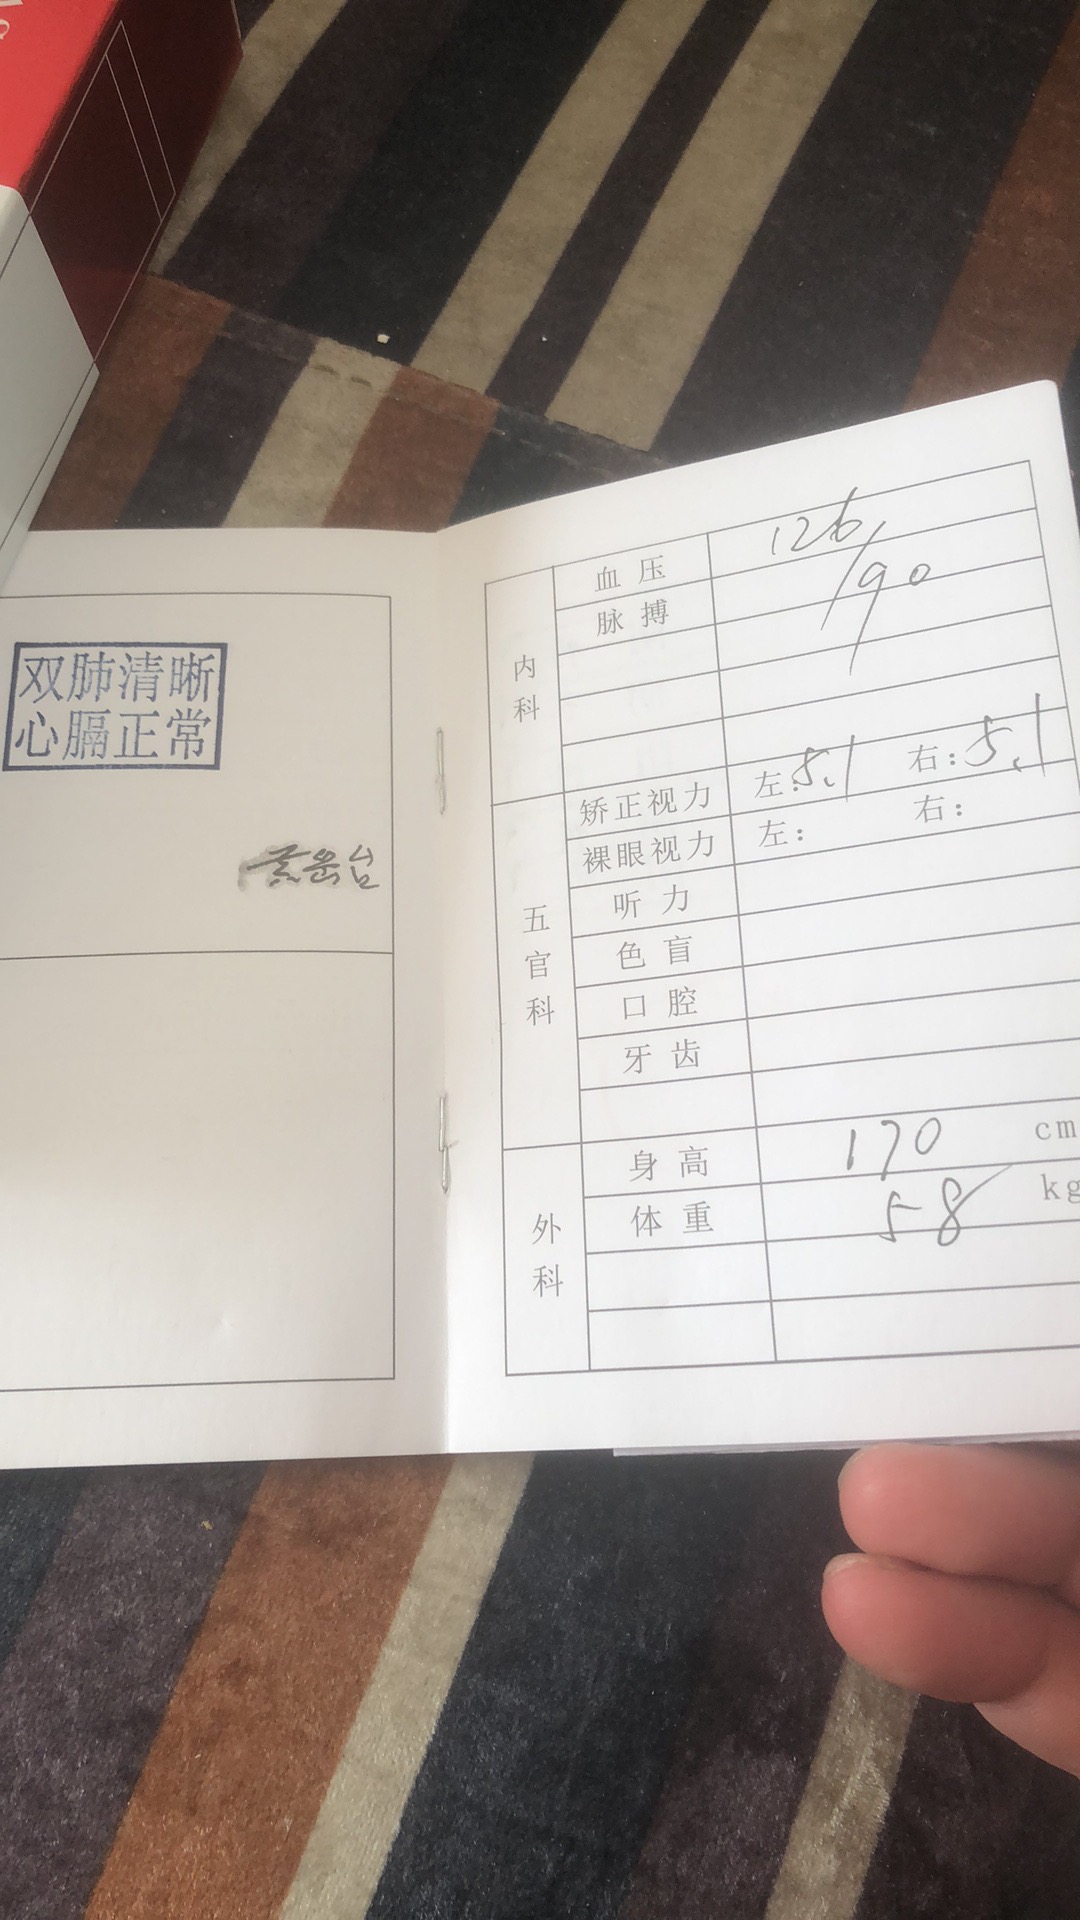 双肺清晰
心膈正常
内科
血压 126/90
脉搏
五官科
矫正视力 左:5.1 右:5.1
裸眼视力 左: 右:
听力
色盲
口腔
牙齿
外科
身高 170 cm
体重 58 kg